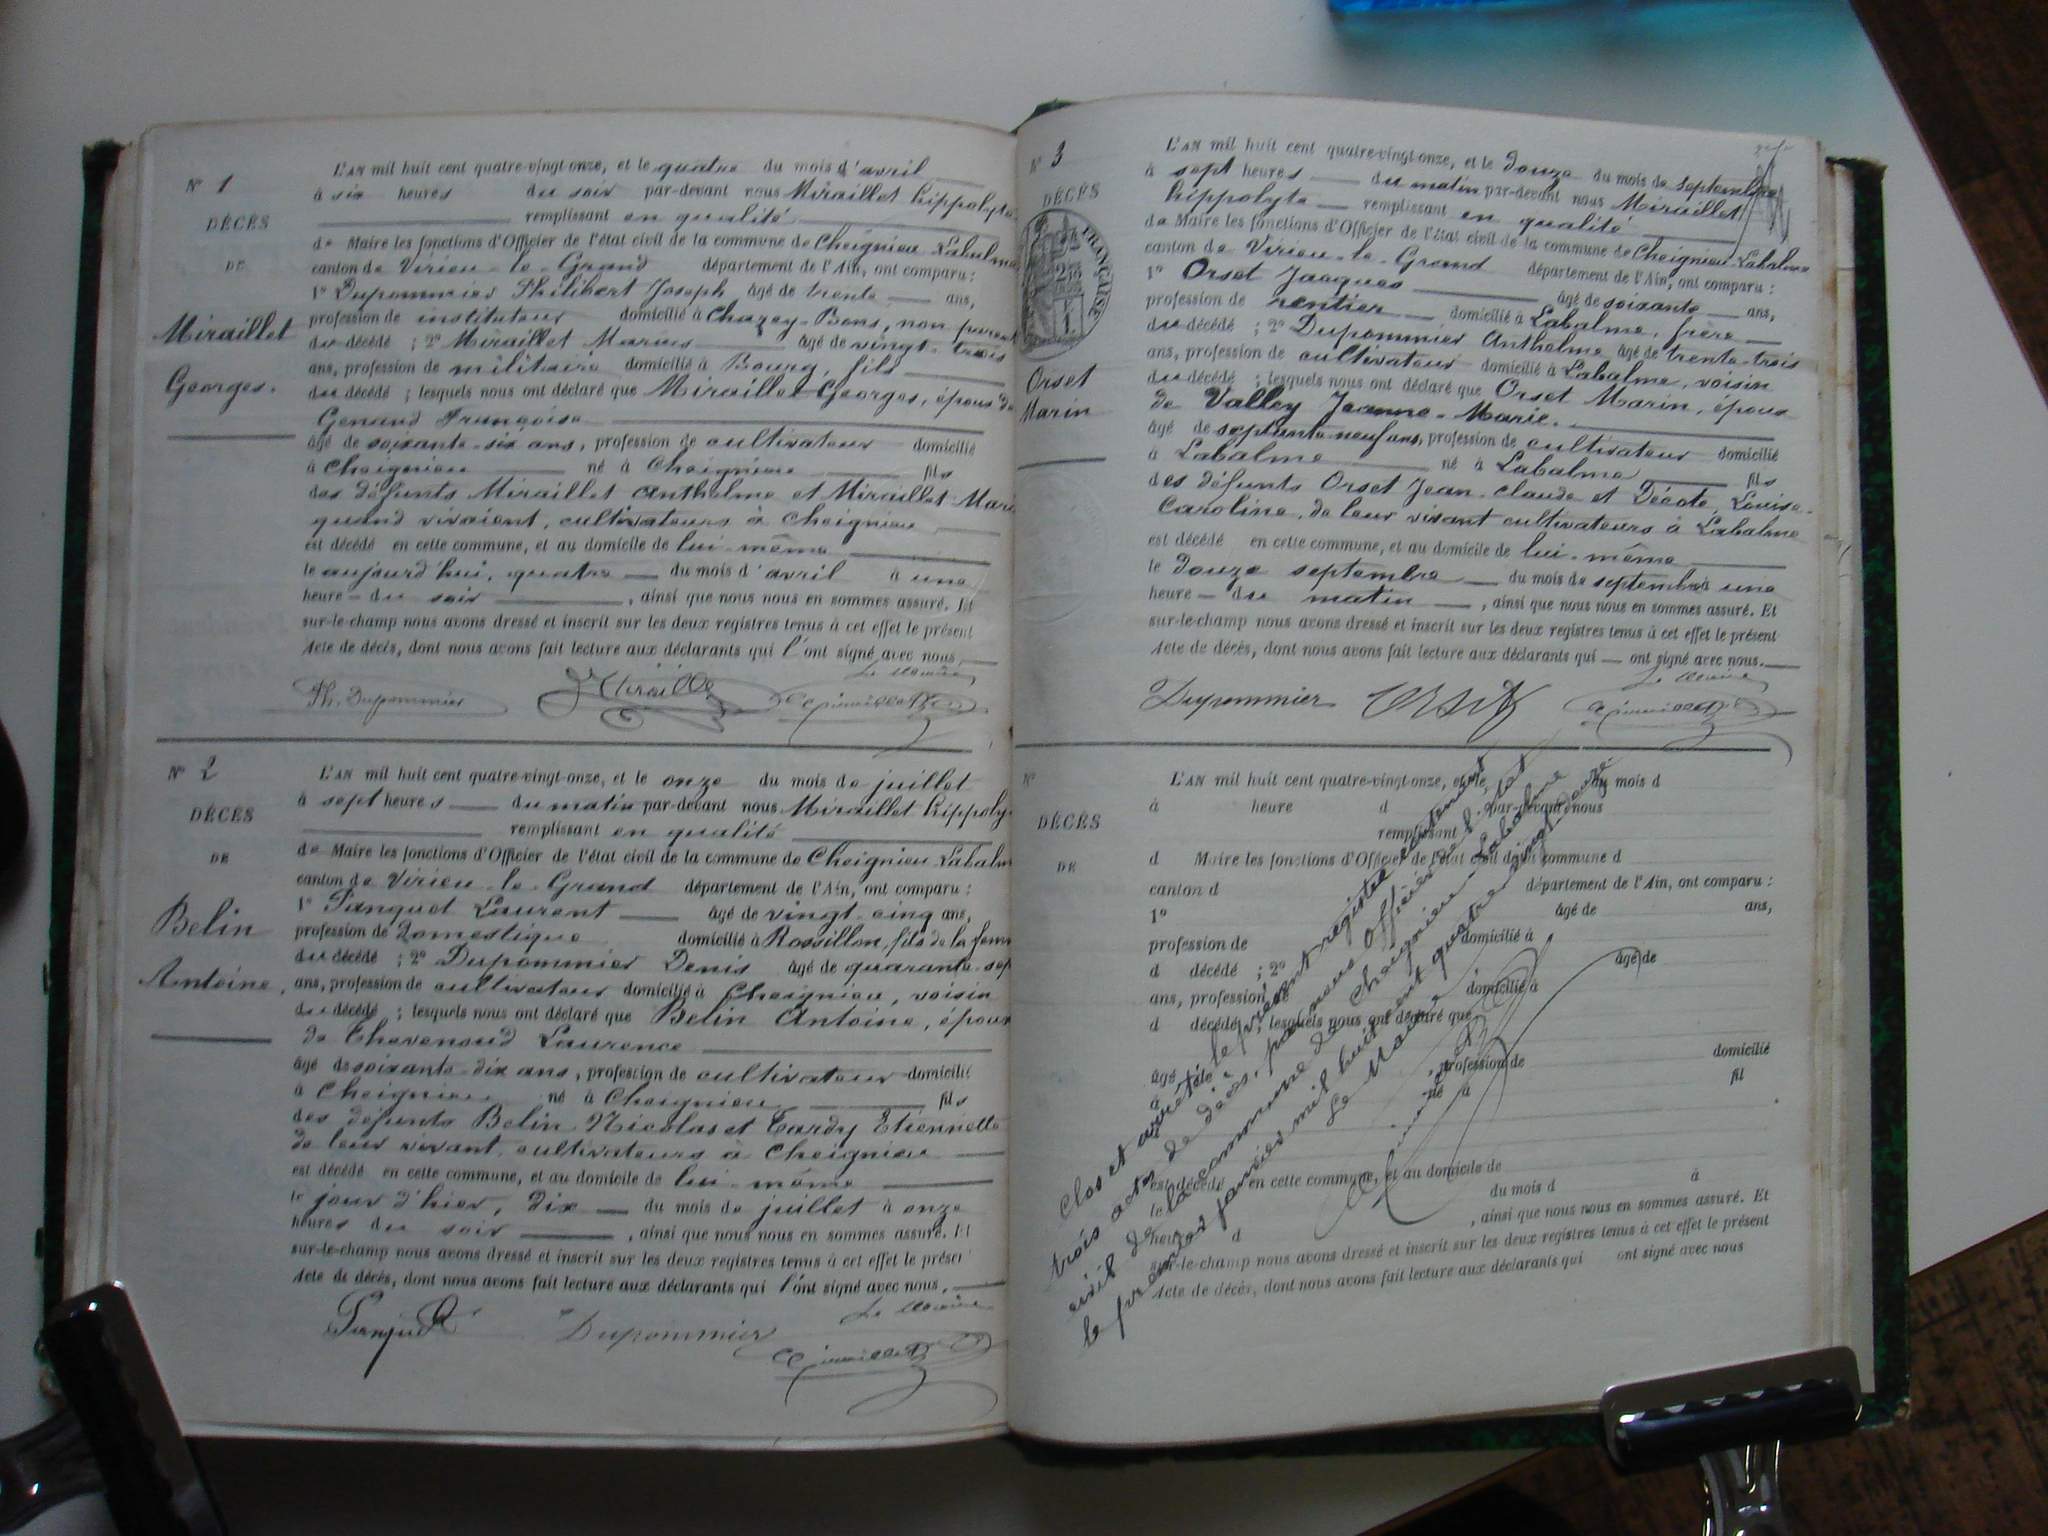 N° 1
DÉCÈS
DE
Miraillet
Georges.
L'AN mil huit cent quatre-vingt-onze, et le quatre du mois d'avril
à six heures du soir par-devant nous Miraillet hippolyte
remplissant en qualité
de Maire les fonctions d'Officier de l'état civil de la commune de Cheignieu Labalme
canton de Virieu-le-Grand département de l'Ain, ont comparu :
1° Dupommier Philibert Joseph âgé de trente ans,
profession de instituteur domicilié à Chazey-Bons, non parent
du décédé ; 2° Miraillet Marius âgé de vingt-trois
ans, profession de militaire domicilié à Bourg, fils
du décédé ; lesquels nous ont déclaré que Miraillet Georges, époux de
Genand Françoise
âgé de soixante-six ans, profession de cultivateur domicilié
à Cheignieu né à Cheignieu fils
des défunts Miraillet Anthelme et Miraillet Marie
quand vivaient, cultivateurs à Cheignieu
est décédé en cette commune, et au domicile de lui-même
le aujourd'hui, quatre du mois d'avril à une
heure du soir , ainsi que nous nous en sommes assuré. Et
sur-le-champ nous avons dressé et inscrit sur les deux registres tenus à cet effet le présent
Acte de décès, dont nous avons fait lecture aux déclarants qui l'ont signé avec nous.
Le Maire
Ph. Dupommier Miraillet
N° 2
DÉCÈS
DE
Belin
Antoine.
L'AN mil huit cent quatre-vingt-onze, et le onze du mois de juillet
à sept heures du matin par-devant nous Miraillet hippoly
remplissant en qualité
de Maire les fonctions d'Officier de l'état civil de la commune de Cheignieu-Labalme
canton de Virieu-le-Grand département de l'Ain, ont comparu :
1° Panguet Laurent âgé de vingt-cinq ans,
profession de Domestique domicilié à Rossillon, fils de la femme
du décédé ; 2° Dupommier Denis âgé de quarante-sep
ans, profession de cultivateur domicilié à Cheignieu, voisin
du décédé ; lesquels nous ont déclaré que Belin Antoine, époux
de Thevenoud Laurence
âgé de soixante-dix ans, profession de cultivateur domicilié
à Cheignieu né à Cheignieu fils
des défunts Belin Nicolas et Tardy Etiennette
de leur vivant cultivateurs à Cheignieu
est décédé en cette commune, et au domicile de lui-même
le jour d'hier, dix du mois de juillet à onze
heures du soir , ainsi que nous nous en sommes assuré. Et
sur-le-champ nous avons dressé et inscrit sur les deux registres tenus à cet effet le présent
Acte de décès, dont nous avons fait lecture aux déclarants qui l'ont signé avec nous.
Le Maire
Panguet Dupommier
N° 3
DÉCÈS
FRANÇAISE
Orset
Marin
L'AN mil huit cent quatre-vingt-onze, et le douze du mois de septembre
à sept heures du matin par-devant nous Miraillet
hippolyte remplissant en qualité
de Maire les fonctions d'Officier de l'état civil de la commune de Cheignieu-Labalme
canton de Virieu-le-Grand département de l'Ain, ont comparu :
1° Orset Jacques âgé de soixante ans,
profession de rentier domicilié à Labalme, frère
du décédé ; 2° Dupommier Anthelme âgé de trente-trois
ans, profession de cultivateur domicilié à Labalme, voisin
du décédé ; lesquels nous ont déclaré que Orset Marin, époux
de Valley Jeanne-Marie.
âgé de septante-neuf ans, profession de cultivateur domicilié
à Labalme né à Labalme fils
des défunts Orset Jean-Claude et Décote, Louise-
Caroline, de leur vivant cultivateurs à Labalme
est décédé en cette commune, et au domicile de lui-même
le douze septembre du mois de septembre à une
heure du matin , ainsi que nous nous en sommes assuré. Et
sur-le-champ nous avons dressé et inscrit sur les deux registres tenus à cet effet le présent
Acte de décès, dont nous avons fait lecture aux déclarants qui ont signé avec nous.
Le Maire
Dupommier Orset
N°
DÉCÈS
DE
L'AN mil huit cent quatre-vingt-onze, et le du mois d
à heure d par-devant nous
remplissant
d Maire les fonctions d'Officier de l'état civil de la commune d
canton d département de l'Ain, ont comparu :
1° âgé de ans,
profession de domicilié à
d décédé ; 2° âgé de
ans, profession de domicilié à
d décédé ; lesquels nous ont déclaré que
âgé de , profession de domicilié
à né à fil
est décédé en cette commune, et au domicile de
le du mois d à
heure d , ainsi que nous nous en sommes assuré. Et
sur-le-champ nous avons dressé et inscrit sur les deux registres tenus à cet effet le présent
Acte de décès, dont nous avons fait lecture aux déclarants qui ont signé avec nous
Clos et arrêté le présent registre contenant
trois actes de décès, par nous Officier de l'état
civil de la commune de Cheignieu-Labalme
le premier janvier mil huit cent quatre-vingt-douze
Le Maire